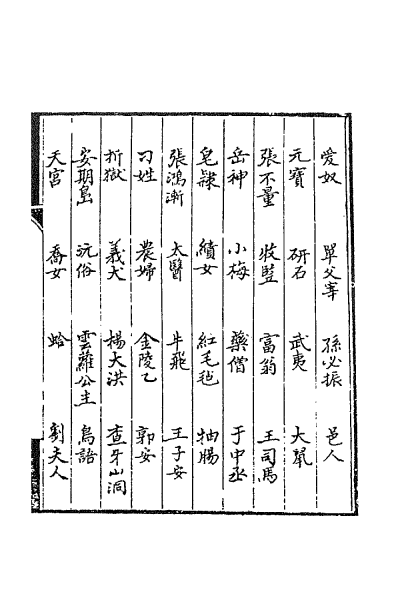 愛奴 單父宰 孫必振 邑人
元寶 研石 武夷 大鼠
張不量 牧豎 富翁 王司馬
岳神 小梅 藥僧 于中丞
皂隸 績女 紅毛毡 抽腸
張鴻漸 太醫 牛飛 王子安
刁姓 農婦 金陵乙 郭安
折獄 義犬 楊大洪 查牙山洞
安期島 沅俗 雲蘿公主 鳥語
天宮 喬女 蛤 劉夫人